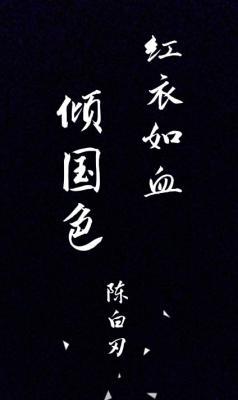 红衣如血
倾国色
陈白刃